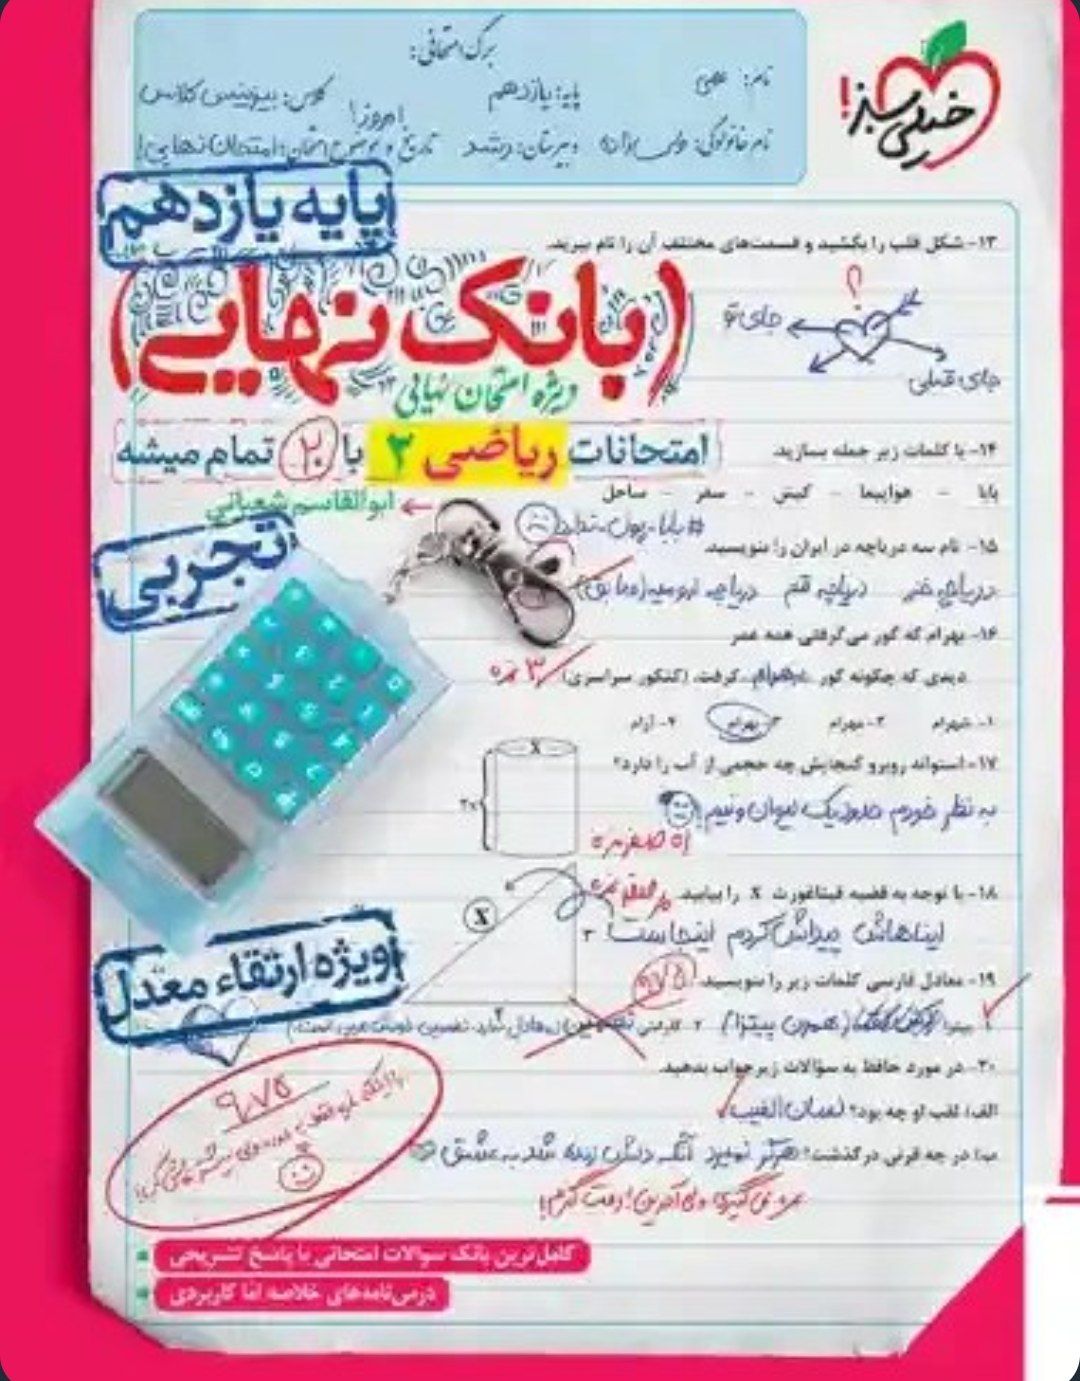 برگ امتحانی:
نام:
پایه: یازدهم
کلاس: بیزینس کلاس
امروز!
نام خانوادگی:
دبیرستان: رشد
تاریخ و موضوع امتحان: امتحان نهایی!
خیلی سبز!
پایه یازدهم
۱۳- شکل قلب را بکشید و قسمت‌های مختلف آن را نام ببرید.
(بانک نهایی)
جای تو
جای قبلی
ویژه امتحان نهایی
امتحانات ریاضی ۲ با ۲۰ تمام میشه
ابوالقاسم شعبانی
۱۴- با کلمات زیر جمله بسازید.
بابا - هواپیما - کیش - سفر - ساحل
#بابا-پول-ندارد
تجربی
۱۵- نام سه دریاچه در ایران را بنویسید.
دریاچه خزر دریاچه قم دریاچه ارومیه (سابق)
۱۶- بهرام که گور می‌گرفتی همه عمر
دیدی که چگونه گور بهرام گرفت. (کنکور سراسری)
۳ نمره
۱- شهرام ۲- مهرام ۳- بهرام ۴- آرام
۱۷- استوانه روبرو گنجایش چه حجمی از آب را دارد؟
X
۲x
به نظر خودم حدود یک لیوان و نیم!
۱۸- با توجه به قضیه فیثاغورث X را بیابید.
X
۳
ایناهاش پیداش کردم اینجاست!
ویژه ارتقاء معدل
۱۹- معادل فارسی کلمات زیر را بنویسید.
۰/۷۵
(همون پیتزا)
۲۰- در مورد حافظ به سؤالات زیر جواب بدهید.
الف) لقب او چه بود؟ لسان الغیب
ب) در چه قرنی درگذشت؟ هرگز نمیرد آنکه دلش زنده شد به عشق
۹/۷۵
کامل‌ترین بانک سوالات امتحانی با پاسخ تشریحی
درس‌نامه‌های خلاصه اما کاربردی